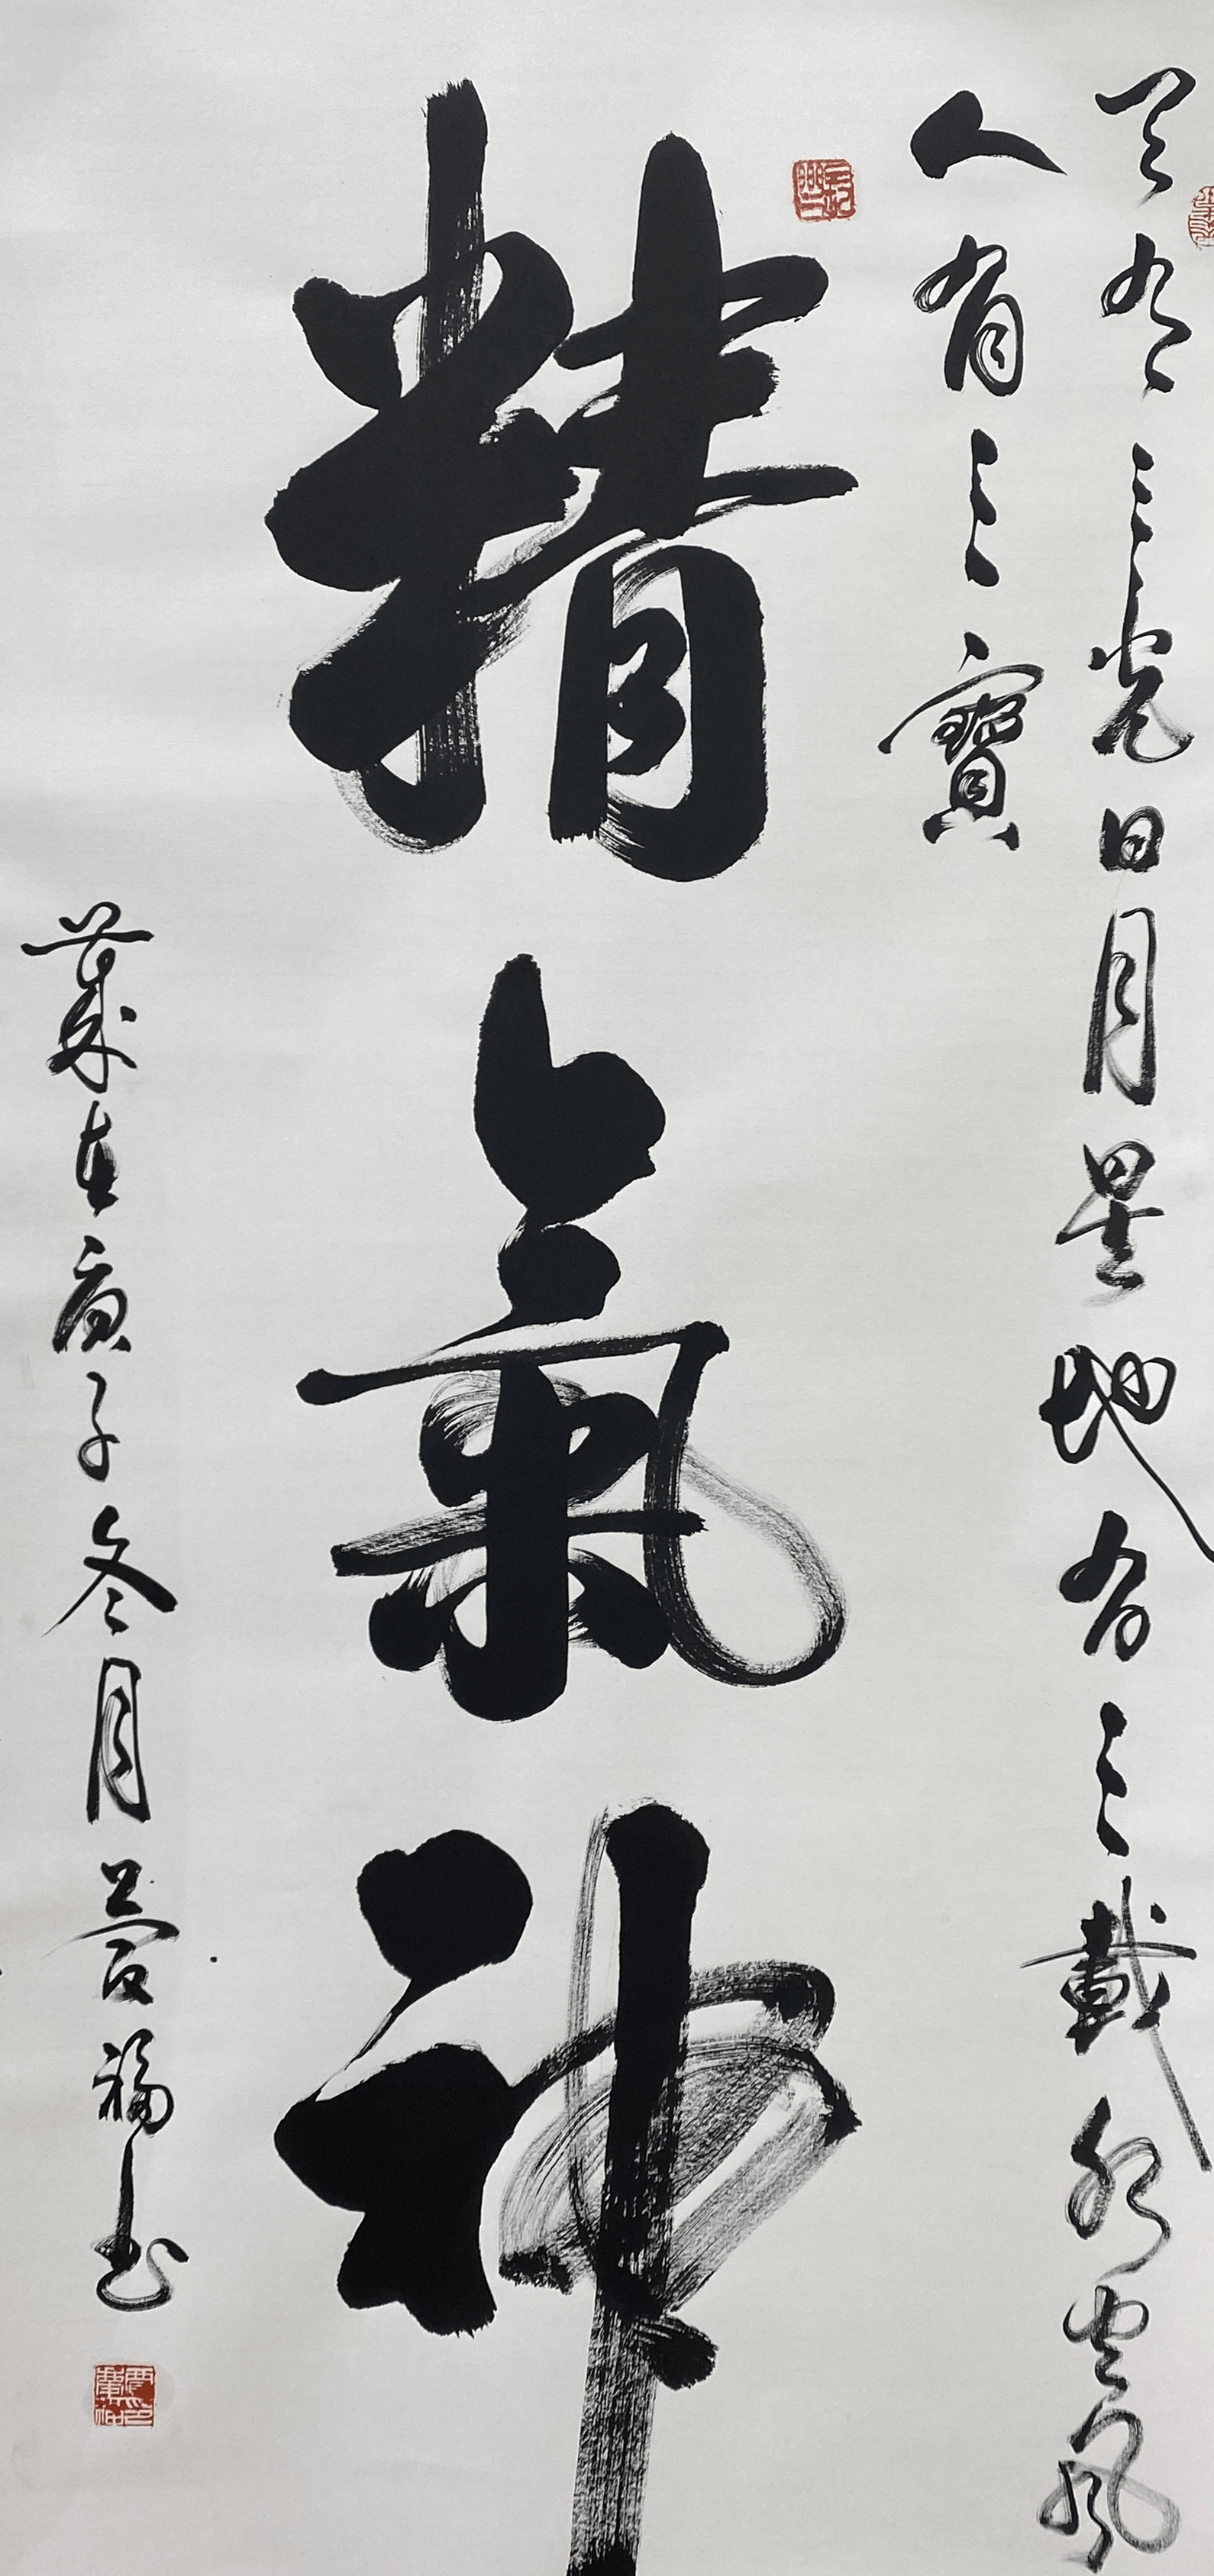 天有三光日月星地有三載水風
人有三寶
精氣神
歲在庚子冬月福书